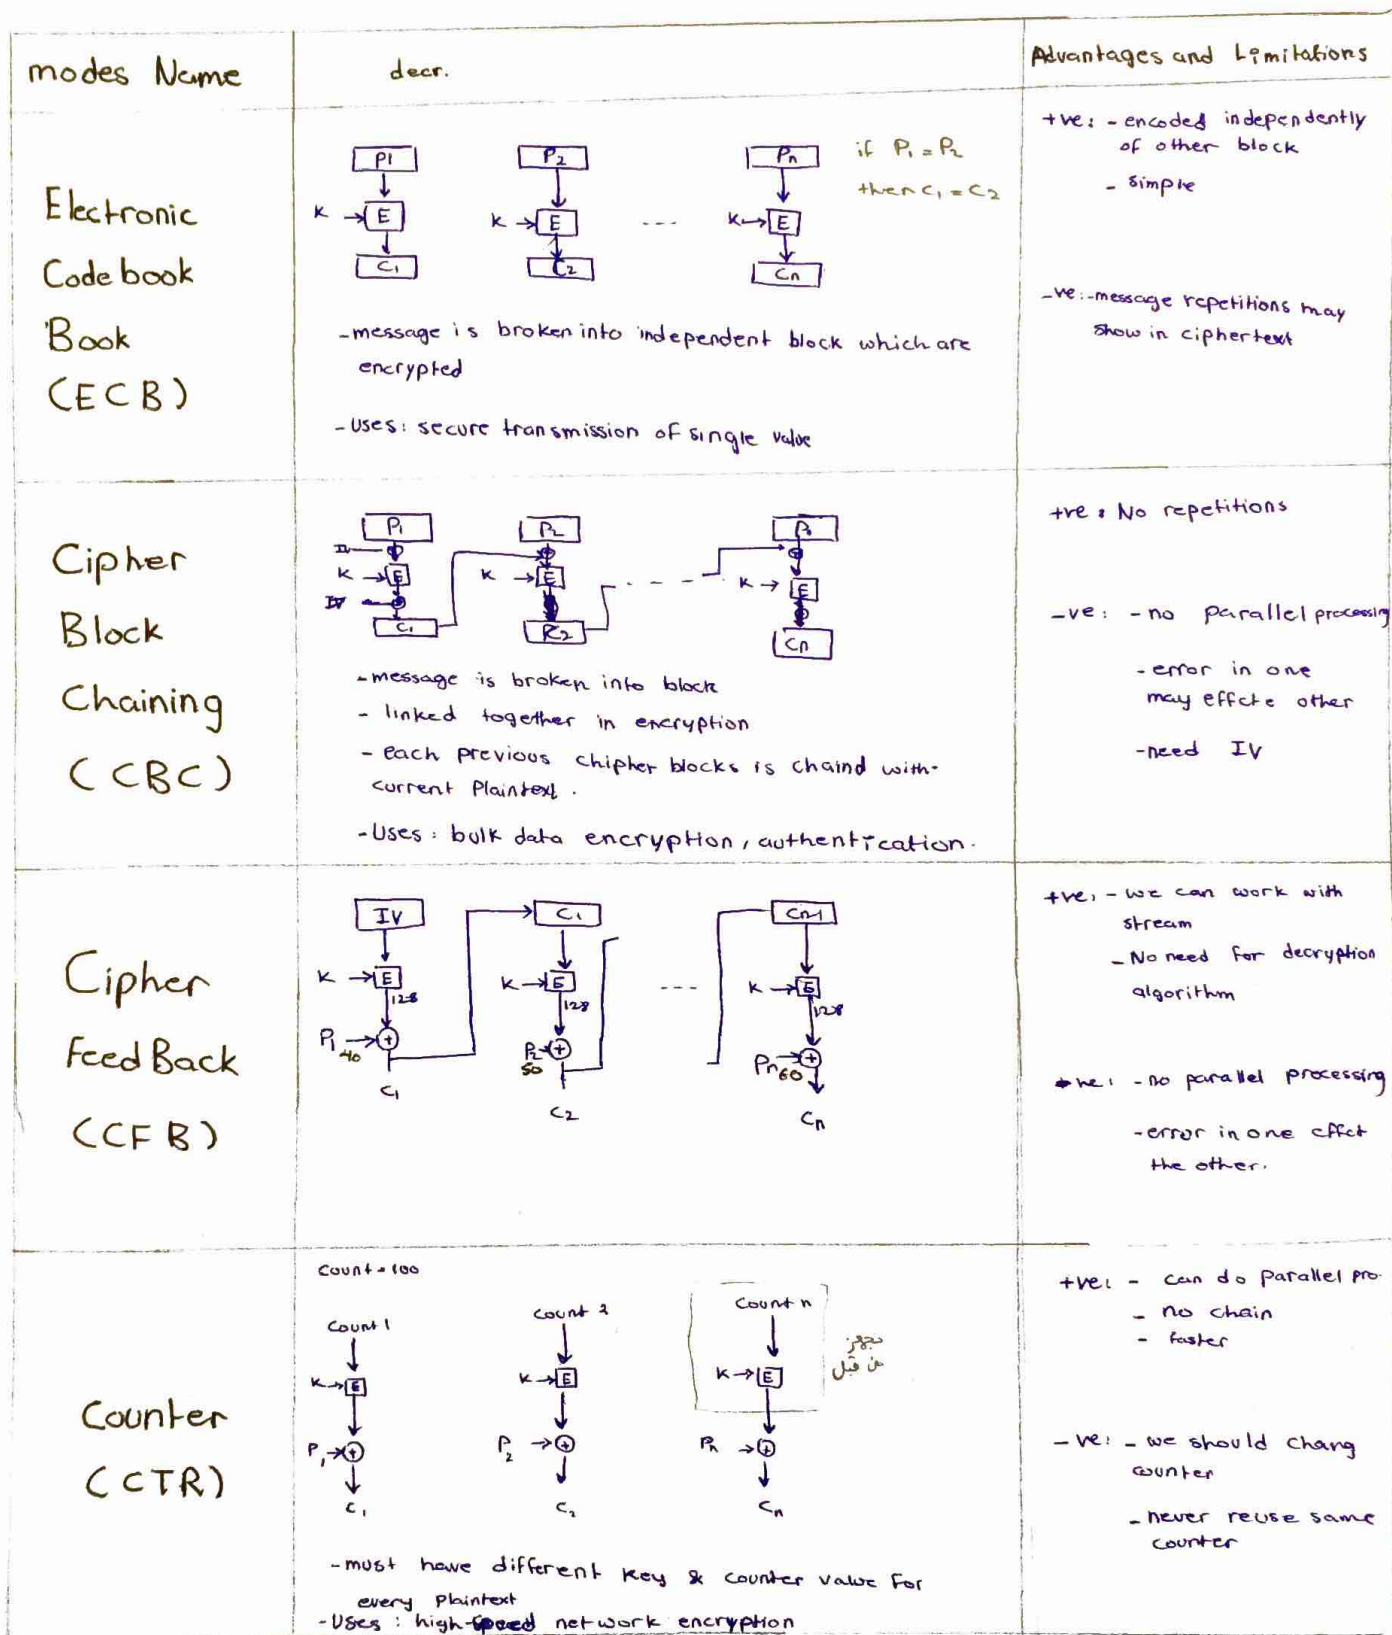 modes Name
decr.
Advantages and Limitations
Electronic
Codebook
Book
(ECB)
P1
P2
Pn
if P1 = P2
then C1 = C2
K
E
K
E
----
K
E
C1
C2
Cn
-message is broken into independent block which are
encrypted
-Uses: secure transmission of single value
+ve: - encoded independently
of other block
- simple
-ve:-message repetitions may
show in ciphertext
Cipher
Block
Chaining
(CBC)
P1
P2
IV
K
E
K
E
K
E
IV
C1
C2
Cn
-message is broken into block
- linked together in encryption
- each previous chipher blocks is chaind with-
current Plaintext.
-Uses: bulk data encryption, authentication.
+ve: No repetitions
-ve: - no parallel processing
-error in one
may effcte other
-need IV
Cipher
FeedBack
(CFB)
IV
C1
Cn-1
K
E
K
E
----
K
E
128
128
128
P1
40
P2
50
Pn
60
C1
C2
Cn
+ve: - we can work with
stream
- No need for decryption
algorithm
-ve: - no parallel processing
-error in one effct
the other.
Counter
(CTR)
Count = 100
Count 1
Count 2
Count n
K
E
K
E
K
E
من قبل
P1
P2
Pn
C1
C2
Cn
-must have different key & counter value for
every plaintext
-Uses: high-speed network encryption
+ve: - can do parallel pro.
- no chain
- faster
-ve: - we should chang
counter
- never reuse same
counter